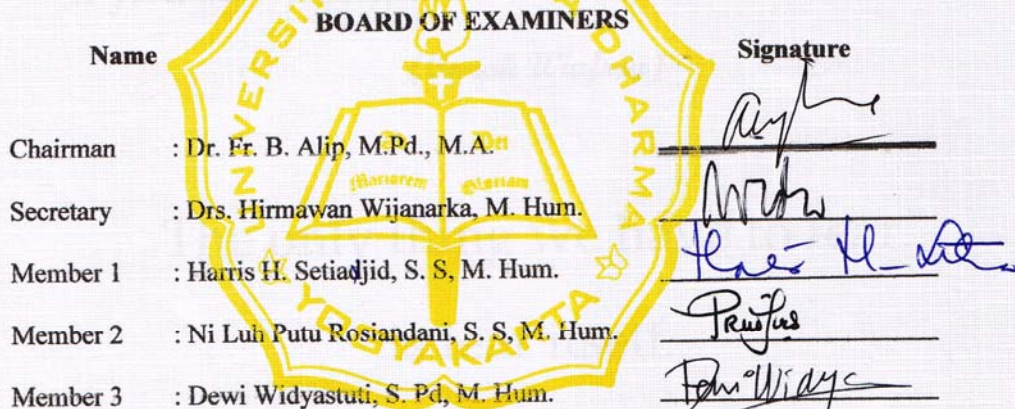 BOARD OF EXAMINERS
Name Signature
Chairman : Dr. Fr. B. Alip, M.Pd., M.A.
Secretary : Drs. Hirmawan Wijanarka, M. Hum.
Member 1 : Harris H. Setiadjid, S. S, M. Hum.
Member 2 : Ni Luh Putu Rosiandani, S. S, M. Hum.
Member 3 : Dewi Widyastuti, S. Pd, M. Hum.
Ad Dei
Maiorem Gloriam
DHARMA
YOGYAKARTA